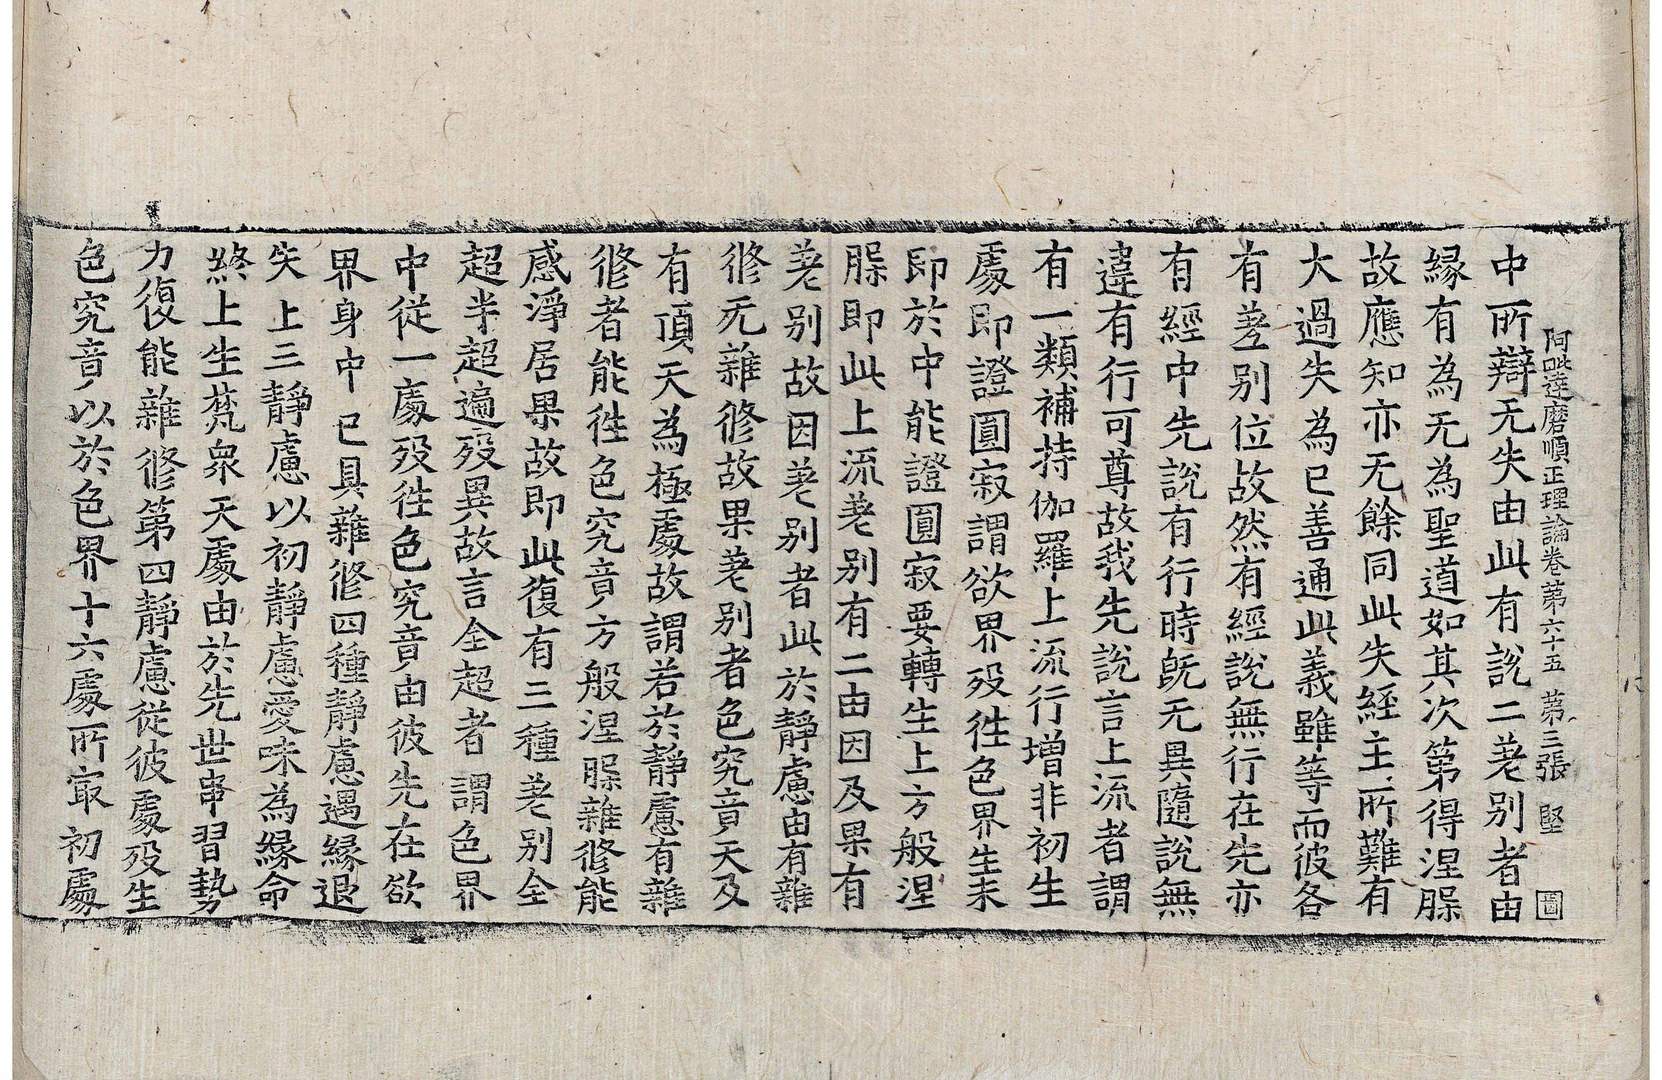 阿毗達磨順正理論卷第六十五 第三張 堅 圖
中所辯无失由此有說二差別者由
緣有為无為聖道如其次第得涅槃
故應知亦无餘同此失經主所難有
大過失為已善通此義雖等而彼各
有差別位故然有經說無行在先亦
有經中先說有行時旣无異隨說無
違有行可尊故我先說言上流者謂
有一類補持伽羅上流行增非初生
處即證圓寂謂欲界歿徃色界生未
即於中能證圓寂要轉生上方般涅
槃即此上流差別有二由因及果有
差別故因差別者此於靜慮由有雜
修无雜修故果差別者色究竟天及
有頂天為極處故謂若於靜慮有雜
修者能徃色究竟方般涅槃雜修能
感淨居果故即此復有三種差別全
超半超遍歿異故言全超者謂色界
中從一處歿徃色究竟由彼先在欲
界身中已具雜修四種靜慮遇緣退
失上三靜慮以初靜慮愛味為緣命
終上生梵眾天處由於先世串習勢
力復能雜修第四靜慮從彼處歿生
色究竟以於色界十六處所㝡初處